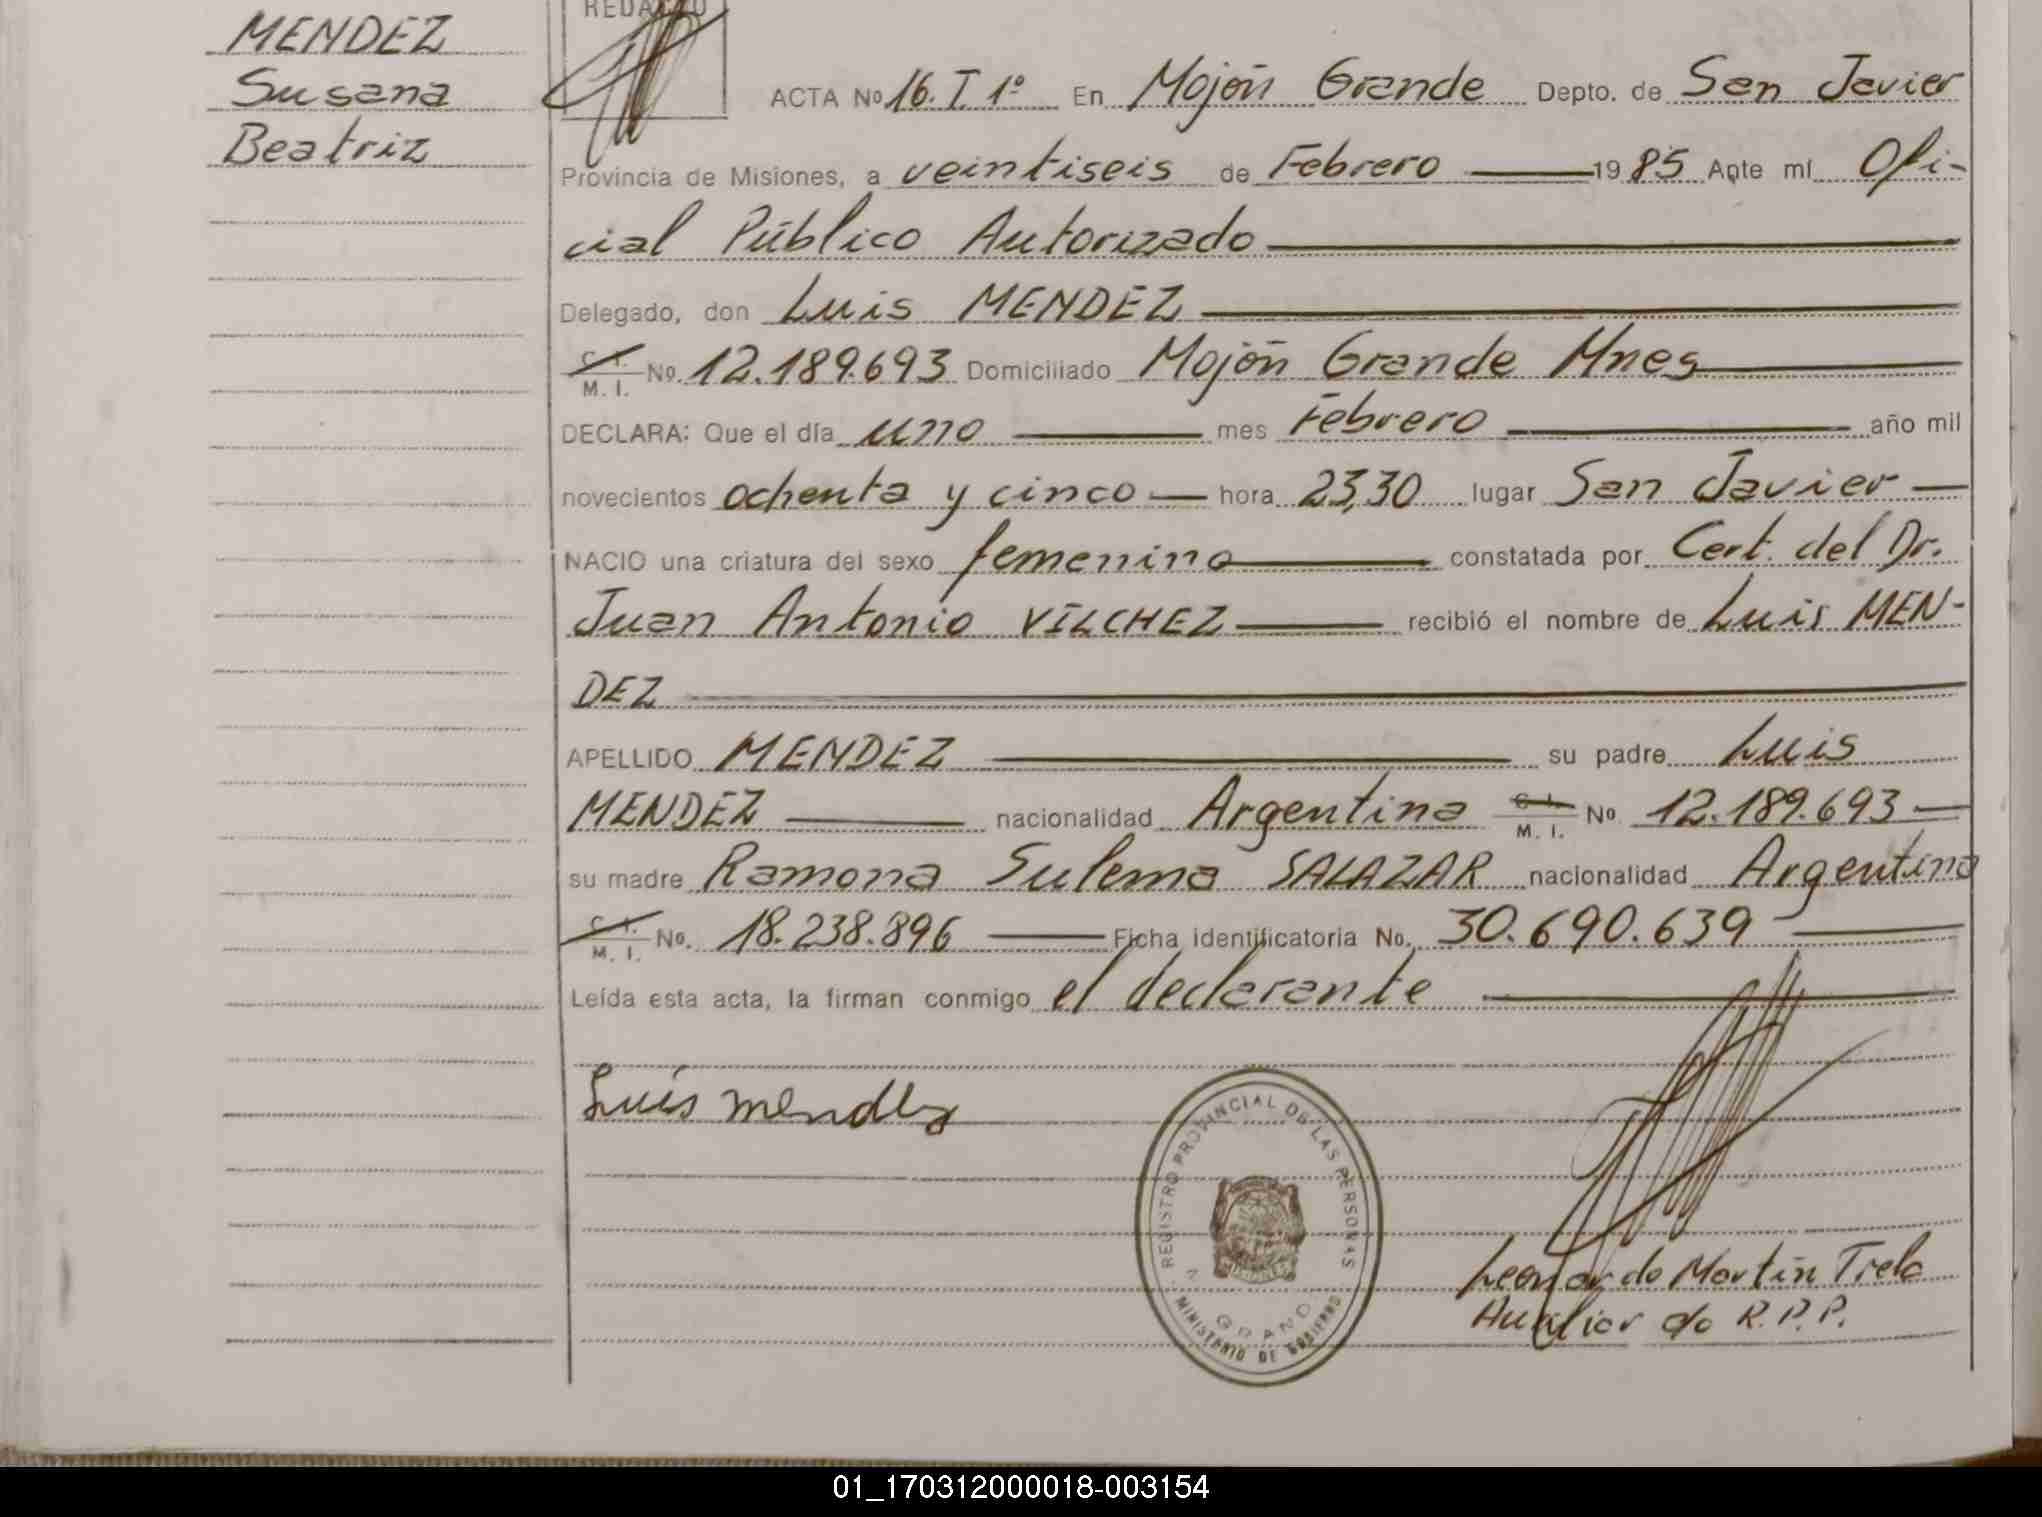 MENDEZ
Susana
Beatriz
REDACTO
ACTA Nº 16. T. 1º En Mojón Grande Depto. de San Javier
Provincia de Misiones, a veintiseis de Febrero 1985 Ante mí Ofi-
cial Público Autorizado
Delegado, don Luis MENDEZ
C. I. M. I. No. 12.189.693 Domiciliado Mojón Grande Mnes
DECLARA: Que el día uno mes Febrero año mil
novecientos ochenta y cinco hora 23,30 lugar San Javier
NACIO una criatura del sexo femenino constatada por Cert. del Dr.
Juan Antonio VÍLCHEZ recibió el nombre de Luis MEN-
DEZ
APELLIDO MENDEZ su padre Luis
MENDEZ nacionalidad Argentina C. I. M. I. No 12.189.693
su madre Ramona Sulema SALAZAR nacionalidad Argentina
C. I. M. I. No. 18.238.896 Ficha identificatoria No. 30.690.639
Leída esta acta, la firman conmigo el declarante
Luis Mendez
REGISTRO PROVINCIAL DE LAS PERSONAS
GRAND
MINISTERIO DE GOBIERNO
Leonardo Martín Trela
Auxiliar de R. P. P.
01_170312000018-003154